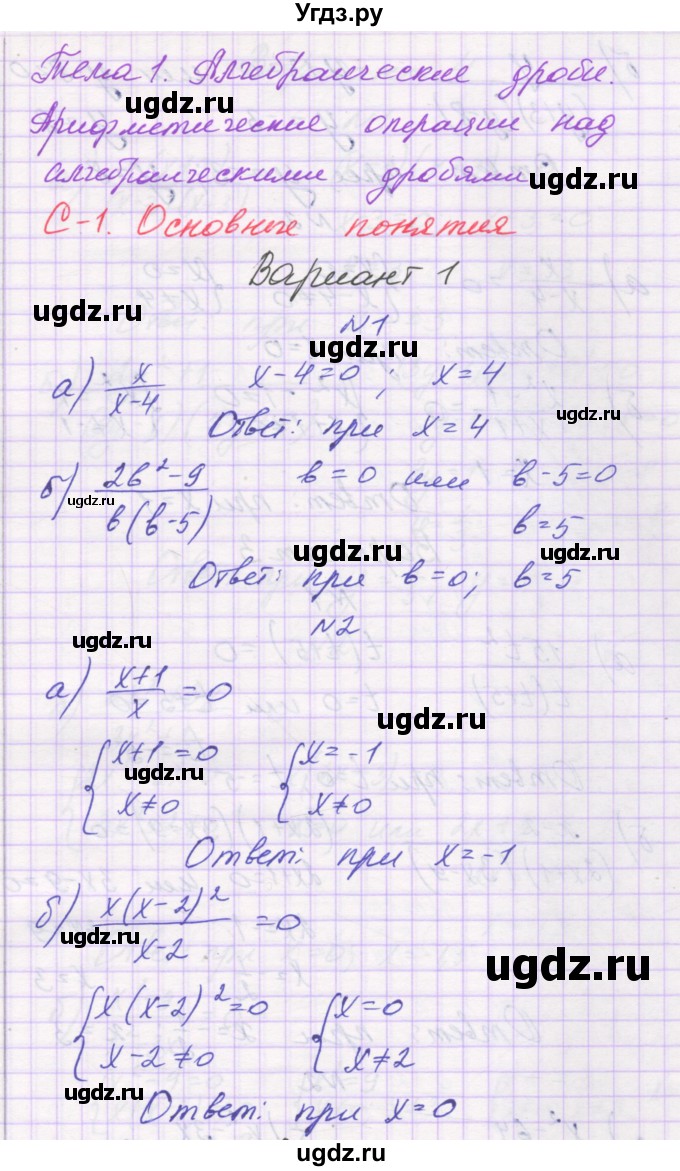 Угдз.ру
Тема 1. Алгебраические дроби.
ugdz.ru
Арифметические операции над
алгебраическими дробями
ugdz.ru
С-1. Основные понятия
Вариант 1
ugdz.ru
N1
ugdz.ru
а) x/(x-4)   x-4=0 ; x=4
ugdz.ru
Ответ: при x=4
б) (2b²-9)/(b(b-5))   b=0 или b-5=0
ugdz.ru
ugdz.ru
b=5
ugdz.ru
ugdz.ru
Ответ: при b=0; b=5
N2
ugdz.ru
а) (x+1)/x =0
ugdz.ru
{x+1=0   {x=-1
ugdz.ru
{x≠0   {x≠0
Ответ: при x=-1
б) x(x-2)²/(x-2) =0
ugdz.ru
ugdz.ru
{x(x-2)²=0   {x=0
{x-2≠0   {x≠2
ugdz.ru
ugdz.ru
Ответ: при x=0
ugdz.ru
ugdz.ru